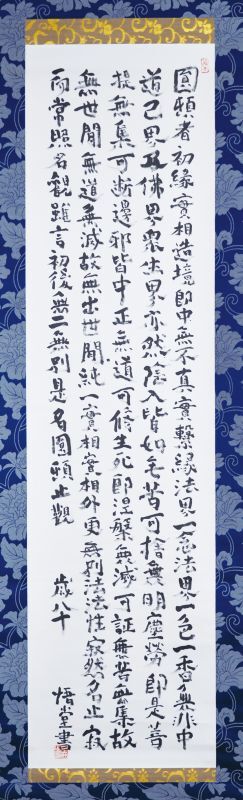 圓頓者初縁實相造境即中無不真實繋縁法界一念法界一色一香無非中
道己界及佛界衆生界亦然陰入皆如無苦可捨無明塵勞即是菩
提無集可断邊邪皆中正無道可修生死即涅槃無滅可証無苦無集故
無世間無道無滅故無出世間純一實相實相外更無別法法性寂然名止寂
而常照名觀雖言初後無二無別是名圓頓止觀　歳八十　悟堂書